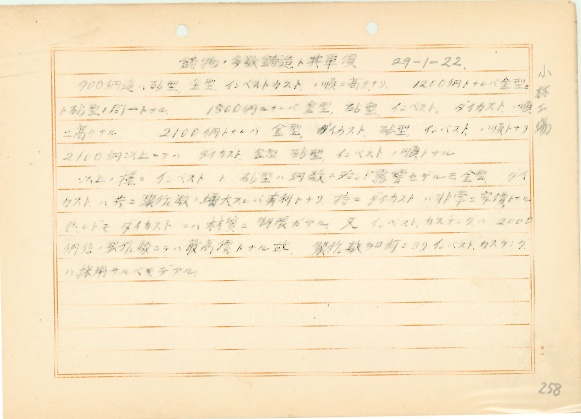 鋳物ノ多数鋳造ト其単價 29-1-22.
900個迄ハ砂型、金型、インベストカスト、ノ順ニ高クナリ. 1200個トナレバ金型
ト砂型ト同一トナル. 1500個ナレバ金型、砂型、インベスト、ダイカスト順
ニ高クナル 2100個トナレバ 金型 ダイカスト、砂型 インベスト、ノ順トナリ
2100個以上ニテハ ダイカスト 金型 砂型 インベスト ノ順トナル
以上ノ様ニ インベスト ト 砂型ハ個数ニ殆ンド影響セザルモ金型 ダイ
カスト ハ 製作数ノ増大スレバ有利トナリ 特ニ ダイカストハ非常ニ安價トナル
ダイカスト ニハ材質ニ制限ガアル. 又 インベスト、カスチングハ 2000
個位ノ製作数ニテハ最高價トナル故 製作数如何ニヨリ インベスト、カスチング
ハ採用サルベキデアル
小林工場
258